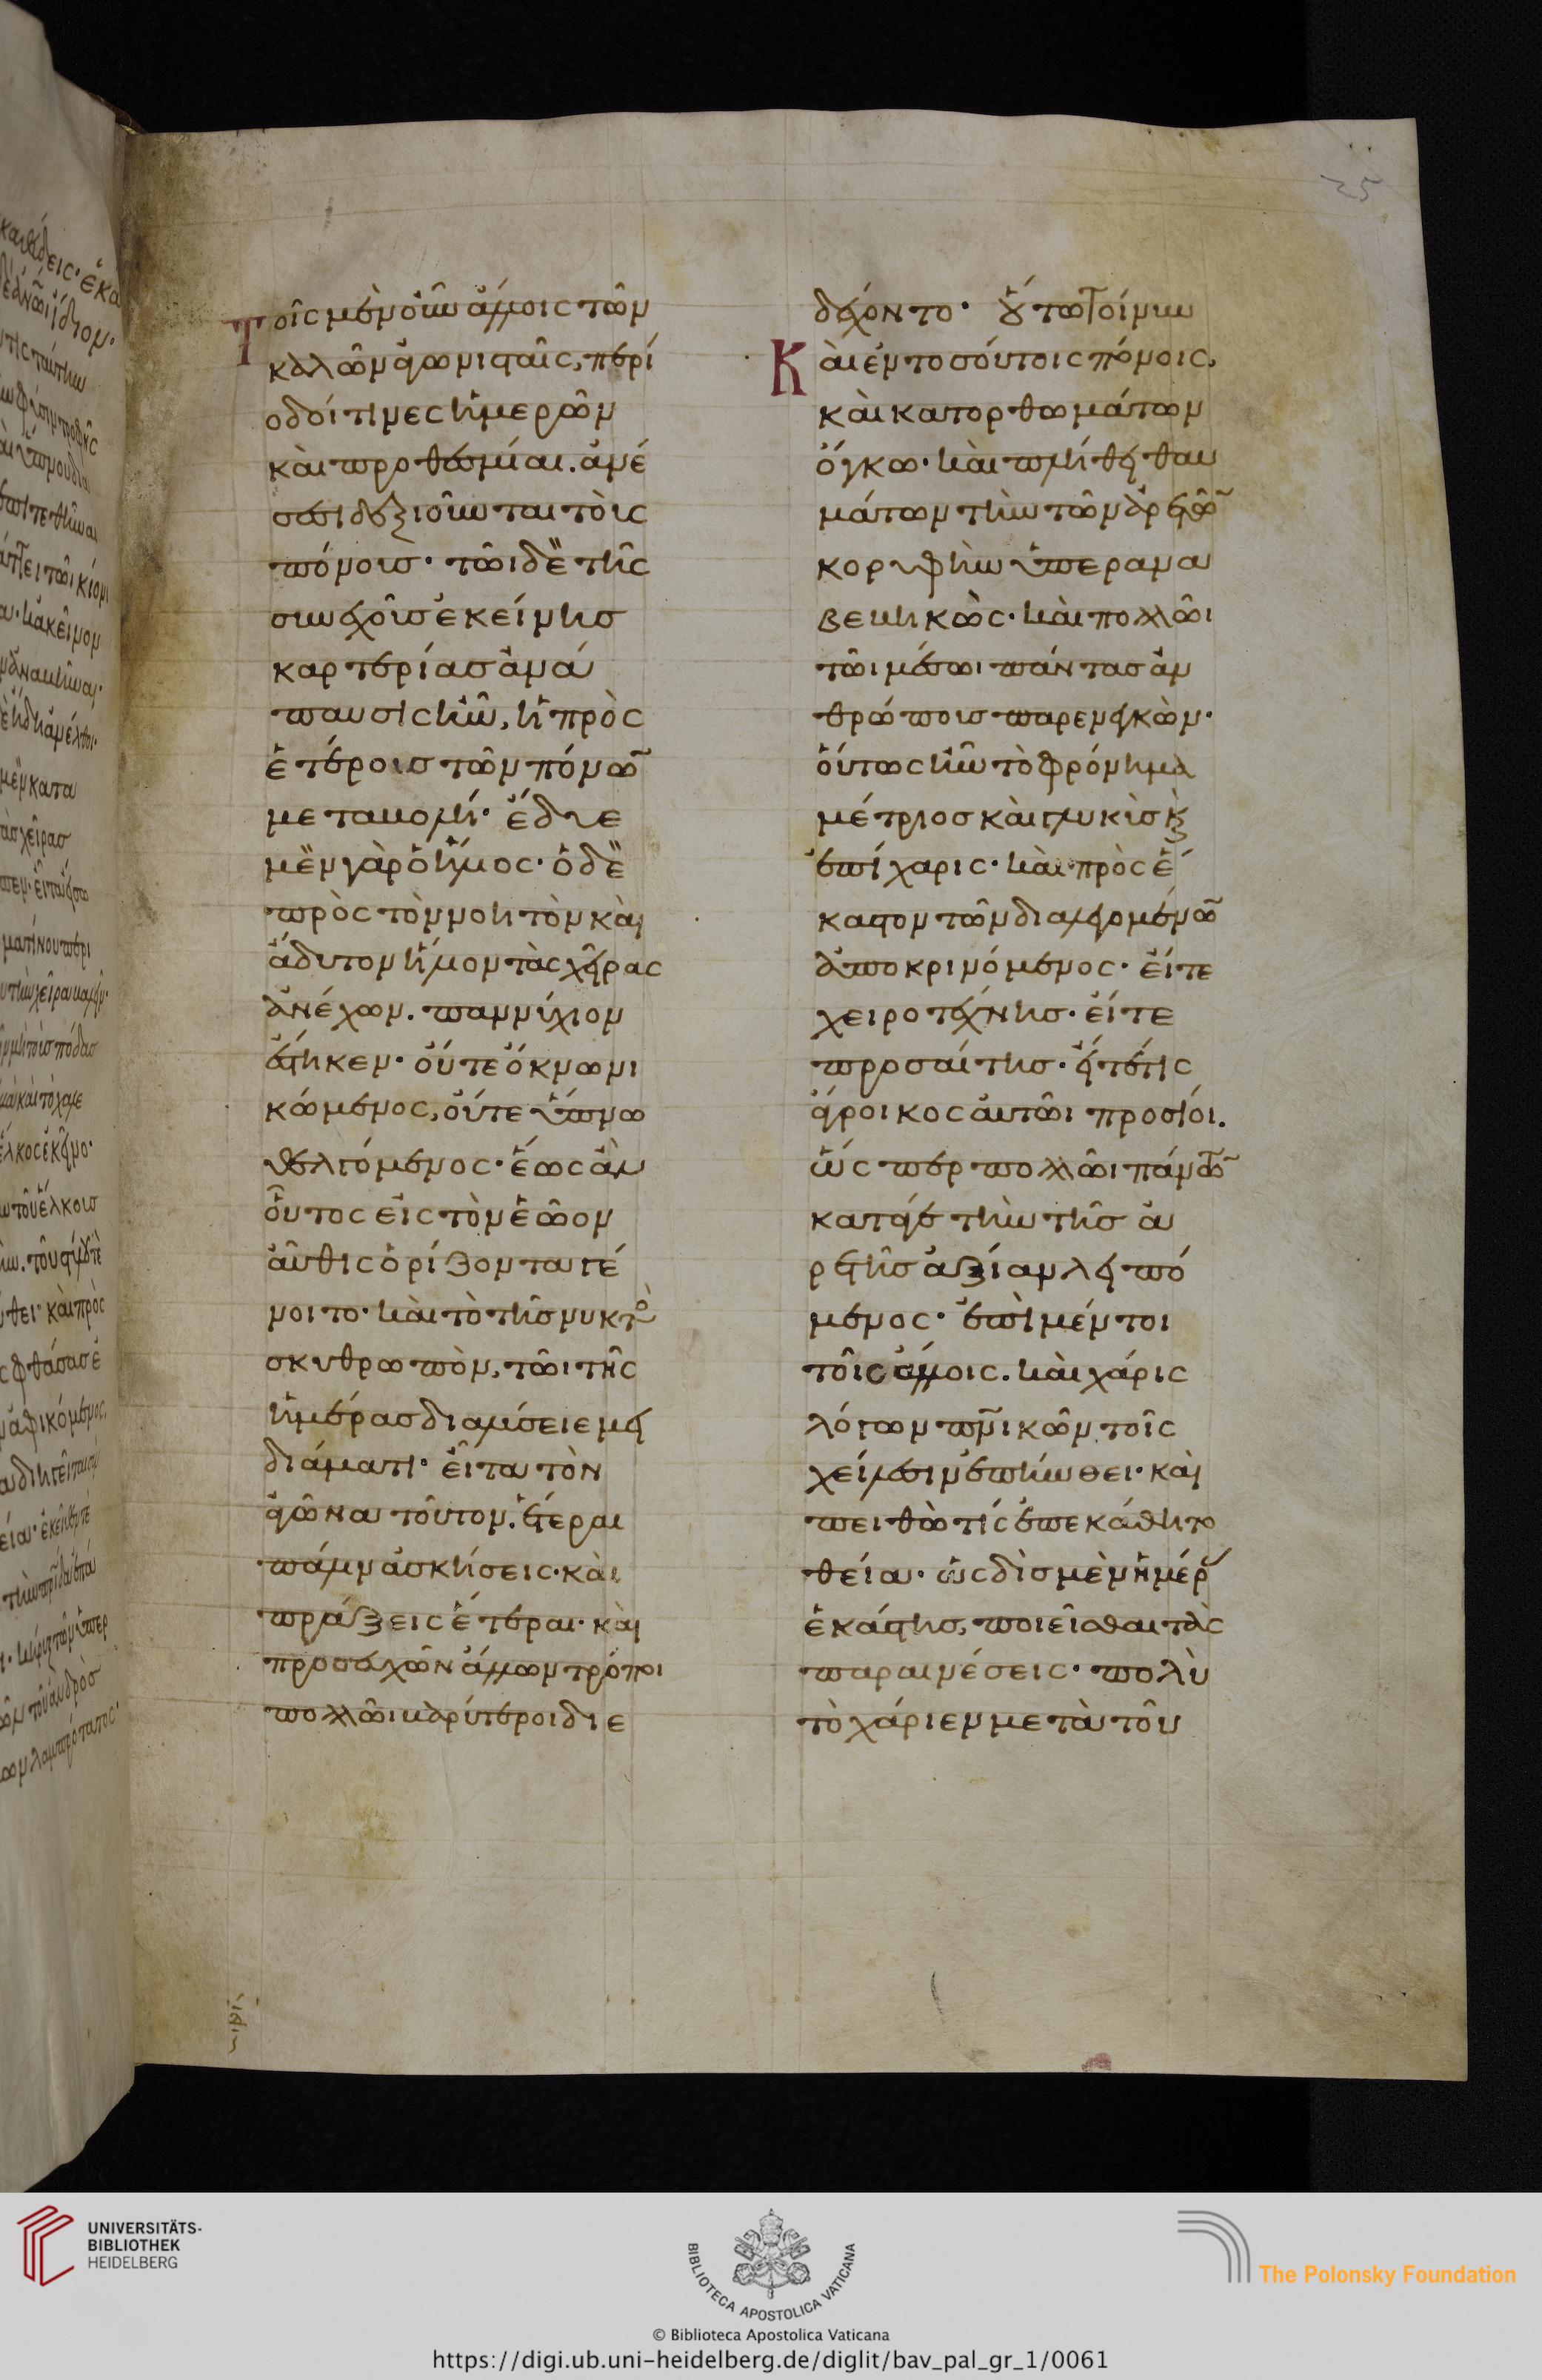 Τοῖς μὲν οὖν ἄλλοις τῶν
καλῶν ἀγωνισταῖς, περί
οδοί τινες ἡμερῶν
καὶ προθεσμίαι. ἀνέ
σει δεξιοῦνται τοὺς
πόνους· τῶι δὲ τῆς
συνεχοῦς ἐκείνης
καρτερίας ἀνά
παυσις ἦν, ἡ πρὸς
ἑτέρους τῶν πόνων
μεταβολή· ἔδυε
μὲν γὰρ ὁ ἥλιος· ὁ δὲ
πρὸς τὸν νοητὸν καὶ
ἄδυτον ἥλιον τὰς χεῖρας
ἀνέχων. παννύχιον
ἕστηκεν· οὔτε ὄκνω νι
κώμενος, οὔτε ὕπνω
θελγόμενος· ἕως ἂν
οὗτος εἰς τὸν ἑῶον
αὖθις ὁρίζοντα γέ
νοιτο· καὶ τὸ τῆς νυκτὸς
σκυθρωπὸν, τῶι τῆς
ἡμέρας διαλύσειε μει
διάματι· εἶτα τὸν
ἀγῶνα τοῦτον. ἕτεραι
πάλιν ἀσκήσεις· καὶ
πράξεις ἕτεραι· καὶ
προσευχῶν ἄλλων τρόποι
πολλῶι βαρύτεροι διε
δέχοντο· οὕτω τοίνυν
Καὶ ἐν τοσούτοις πόνοις,
καὶ κατορθωμάτων
ὄγκω· καὶ πλήθει θαυ
μάτων τὴν τῶν ἀρετῶν
κορυφὴν ὑπεραναβε
βηκὼς· καὶ πολλῶι
τῶι μέσωι πάντας ἀν
θρώπους παρενεγκὼν·
οὕτως ἦν τὸ φρόνημα
μέτριος καὶ γλυκὺς κ(αὶ)
ἐπίχαρις· καὶ πρὸς ἕ
καστον τῶν διαλεγομένων
ἀποκρινόμενος· εἴτε
χειροτέχνης· εἴτε
προσαίτης· εἴτε τίς
ἄγροικος αὐτῶι προσίοι.
ὥς περ πολλῶι πάντων
κατάγε τὴν τῆς ἀ
ρετῆς ἀξίαν λειπό
μενος· ἐπὶ μέντοι
τοῖς ἄλλοις. καὶ χάρις
λόγων πνικῶν τοῖς
χείλεσιν ἐπήνθει· καὶ
πειθώ τίς ἐπεκάθητο
θεία· ὡς δὶς μὲν ἡμέρας
ἑκάστης, ποιεῖσθαι τὰς
παραινέσεις· πολὺ
τὸ χάριεν μετὰ τοῦ
UNIVERSITÄTS-
BIBLIOTHEK
HEIDELBERG
BIBLIOTECA APOSTOLICA VATICANA
The Polonsky Foundation
© Biblioteca Apostolica Vaticana
https://digi.ub.uni-heidelberg.de/diglit/bav_pal_gr_1/0061